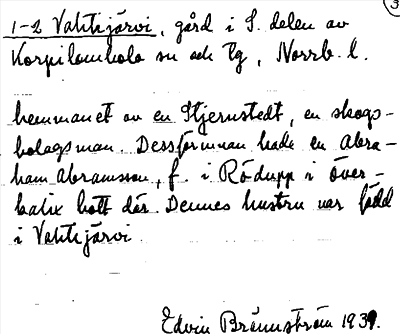 3
1-2 Vahtijärvi, gård i S. delen av
Korpilombolo sn och tg, Norrb. l.
hemmanet av en Stjernstedt, en skogs-
bolagsman. Dessförinnan hade en Abra-
ham Abramsson, f. i Rödupp i Över-
kalix bott där. Dennes hustru var född
i Vahtijärvi
Edvin Brännström 1939.